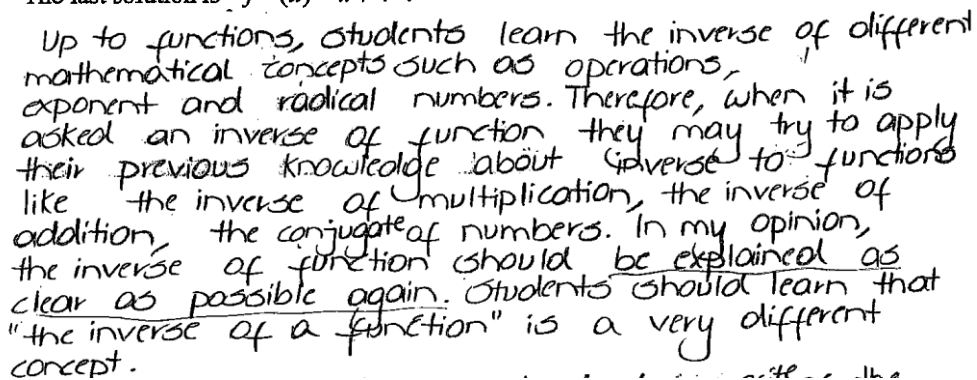 Up to functions, students learn the inverse of different
mathematical concepts such as operations,
exponent and radical numbers. Therefore, when it is
asked an inverse of function they may try to apply
their previous knowledge about inverse to functions
like the inverse of multiplication, the inverse of
addition, the conjugate of numbers. In my opinion,
the inverse of function should be explained as
clear as possible again. Students should learn that
"the inverse of a function" is a very different
concept.